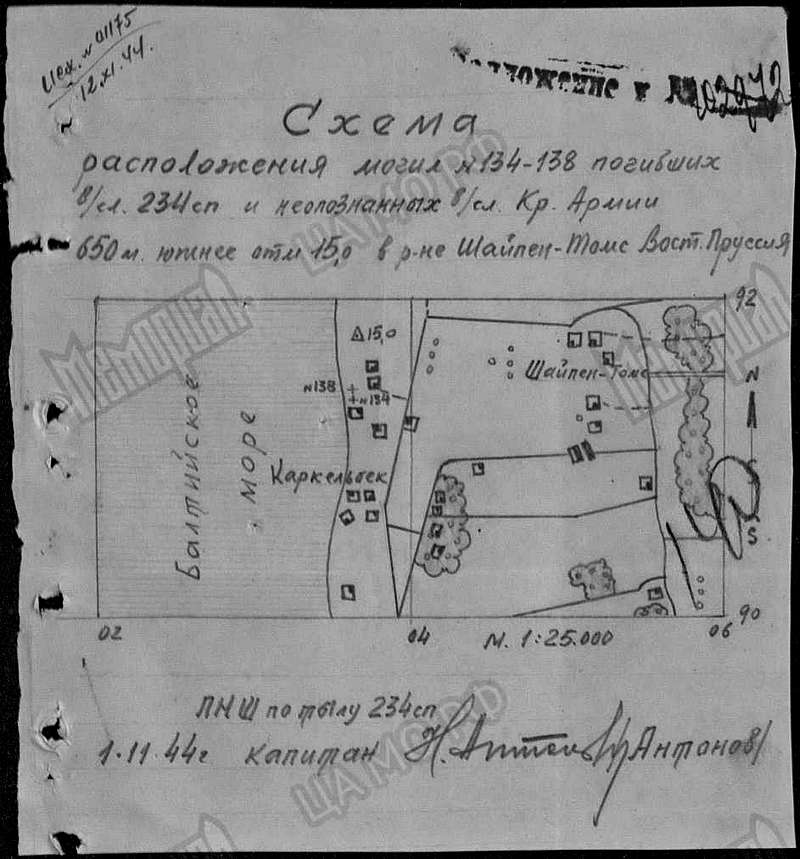 Исх. № 01175
12.XI.44.
Приложение к
02972
Схема
расположения могил №134-138 погибших
в/сл. 234сп и неопознанных в/сл. Кр. Армии
650 м. южнее отм 15,0 в р-не Шайпен-Томс Вост. Пруссия
92
15,0
Шайпен-Томс
№138
№134
N
Балтийское
море
Каркельбек
S
90
02
04
М. 1:25.000
06
ПНШ по тылу 234сп
1.11.44г капитан /Антонов/
Мемориал
ЦАМО.РФ
Мемориал
ЦАМО.РФ